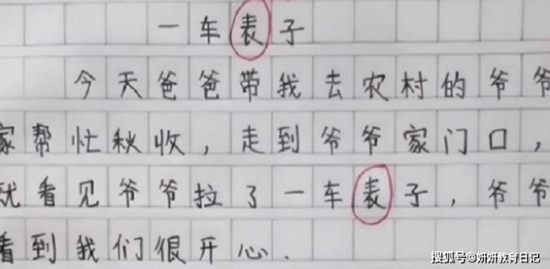 一车表子
今天爸爸带我去农村的爷爷
家帮忙秋收，走到爷爷家门口，
就看见爷爷拉了一车表子，爷爷
看到我们很开心.
搜狐号@妍妍教育日记